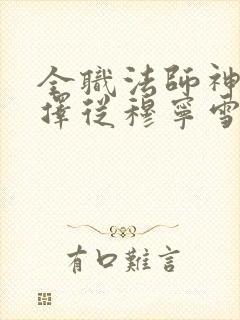 全職法師神
擇從穆寧雪
有口難言